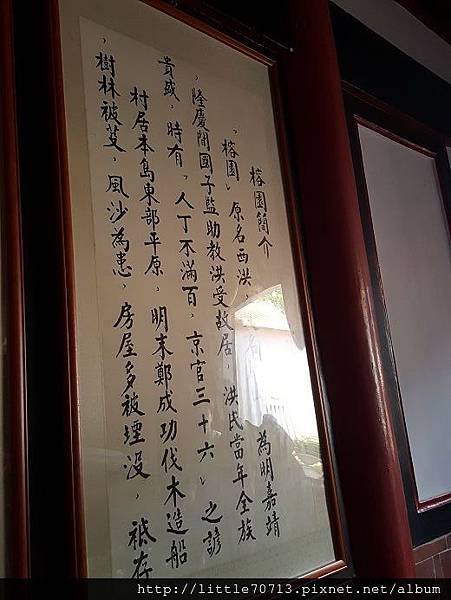 榕園簡介
「榕園」原名西洪，為明嘉靖
，隆慶間國子監助教洪受故居，洪氏當年全族
貴盛，時有「人丁不滿百，京官三十六」之諺
村居本島東部平原，明末鄭成功伐木造船
，樹林被芟，風沙為患，房屋多被埋沒，祗存
http://little70713.pixnet.net/album